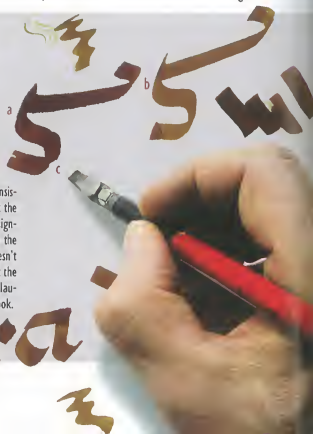 b
a
c
nsis-
the
ign-
the
esn't
the
lau-
ook.